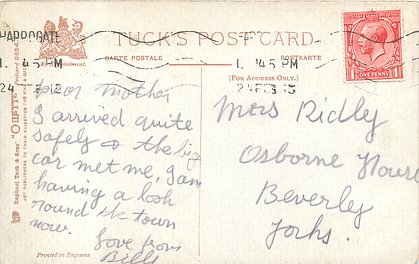 TUCK'S POST CARD
CARTE POSTALE
POSTKARTE
(FOR ADDRESS ONLY.)
HARROGATE
1. 45 PM
1. 45 PM
24 FEB 13
ONE PENNY
Raphael Tuck & Sons' "OILETTE"
ART PUBLISHERS TO THEIR MAJESTIES THE KING &
Printed in England
Dear Mother
I arrived quite
safely & the big
car met me, I am
having a look
round the town
now.
Love from
Mrs Ridly
Osborne House
Beverly
Yorks.